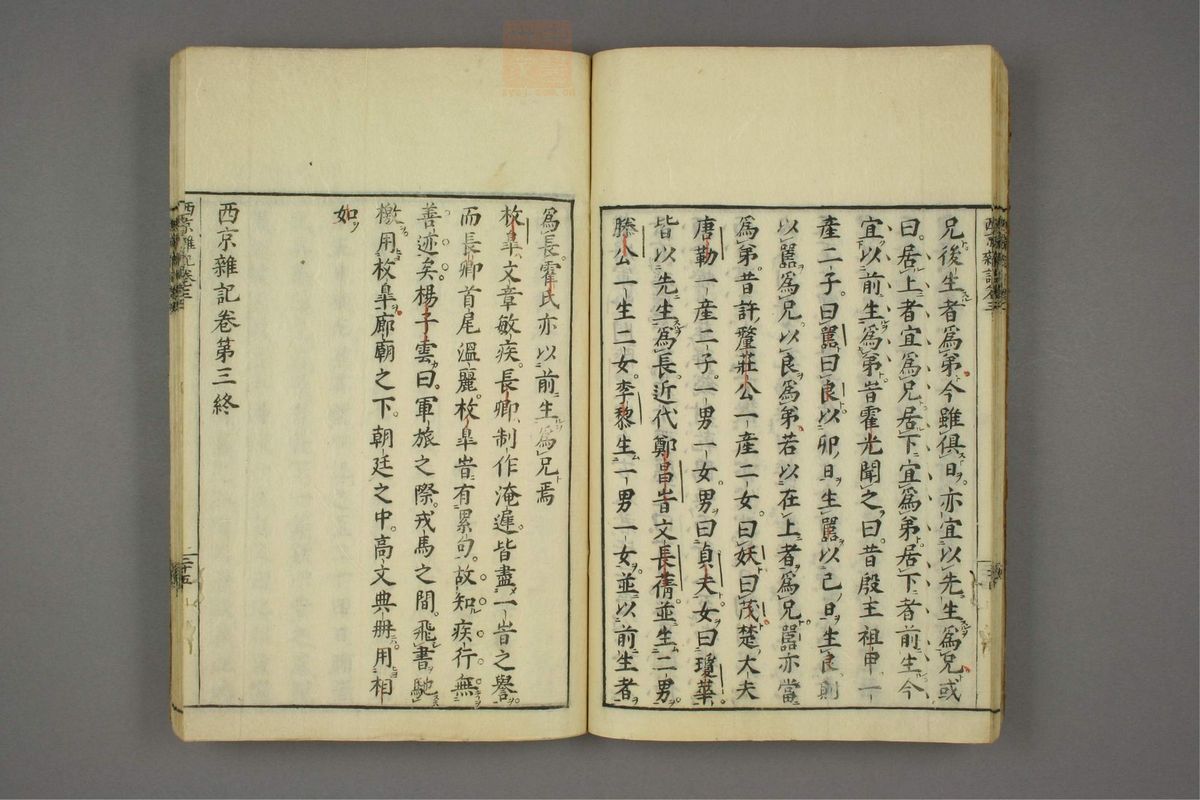 兄後生者為弟今雖俱日亦宜以先生為兄或
曰居上者宜為兄居下宜為弟居下者前生今
宜以前生為弟旹霍光聞之曰昔殷王祖甲一
產二子曰嚚曰良以卯日生嚚以巳日生良則
以嚚為兄以良為弟若以在上者為兄嚚亦當
為弟昔許釐莊公一產二女曰妖曰茂楚大夫
唐勒一產二子一男一女男曰貞夫女曰瓊華
皆以先生為長近代鄭昌旹文長蒨並生二男
滕公一生二女李黎生一男一女並以前生者
為長霍氏亦以前生為兄焉
枚皐文章敏疾長卿制作淹遲皆盡一旹之譽
而長卿首尾溫麗枚皐旹有累句故知疾行無
善迹矣楊子雲曰軍旅之際戎馬之間飛書馳
檄用枚皐廊廟之下朝廷之中高文典冊用相
如
西京雜記卷第三終